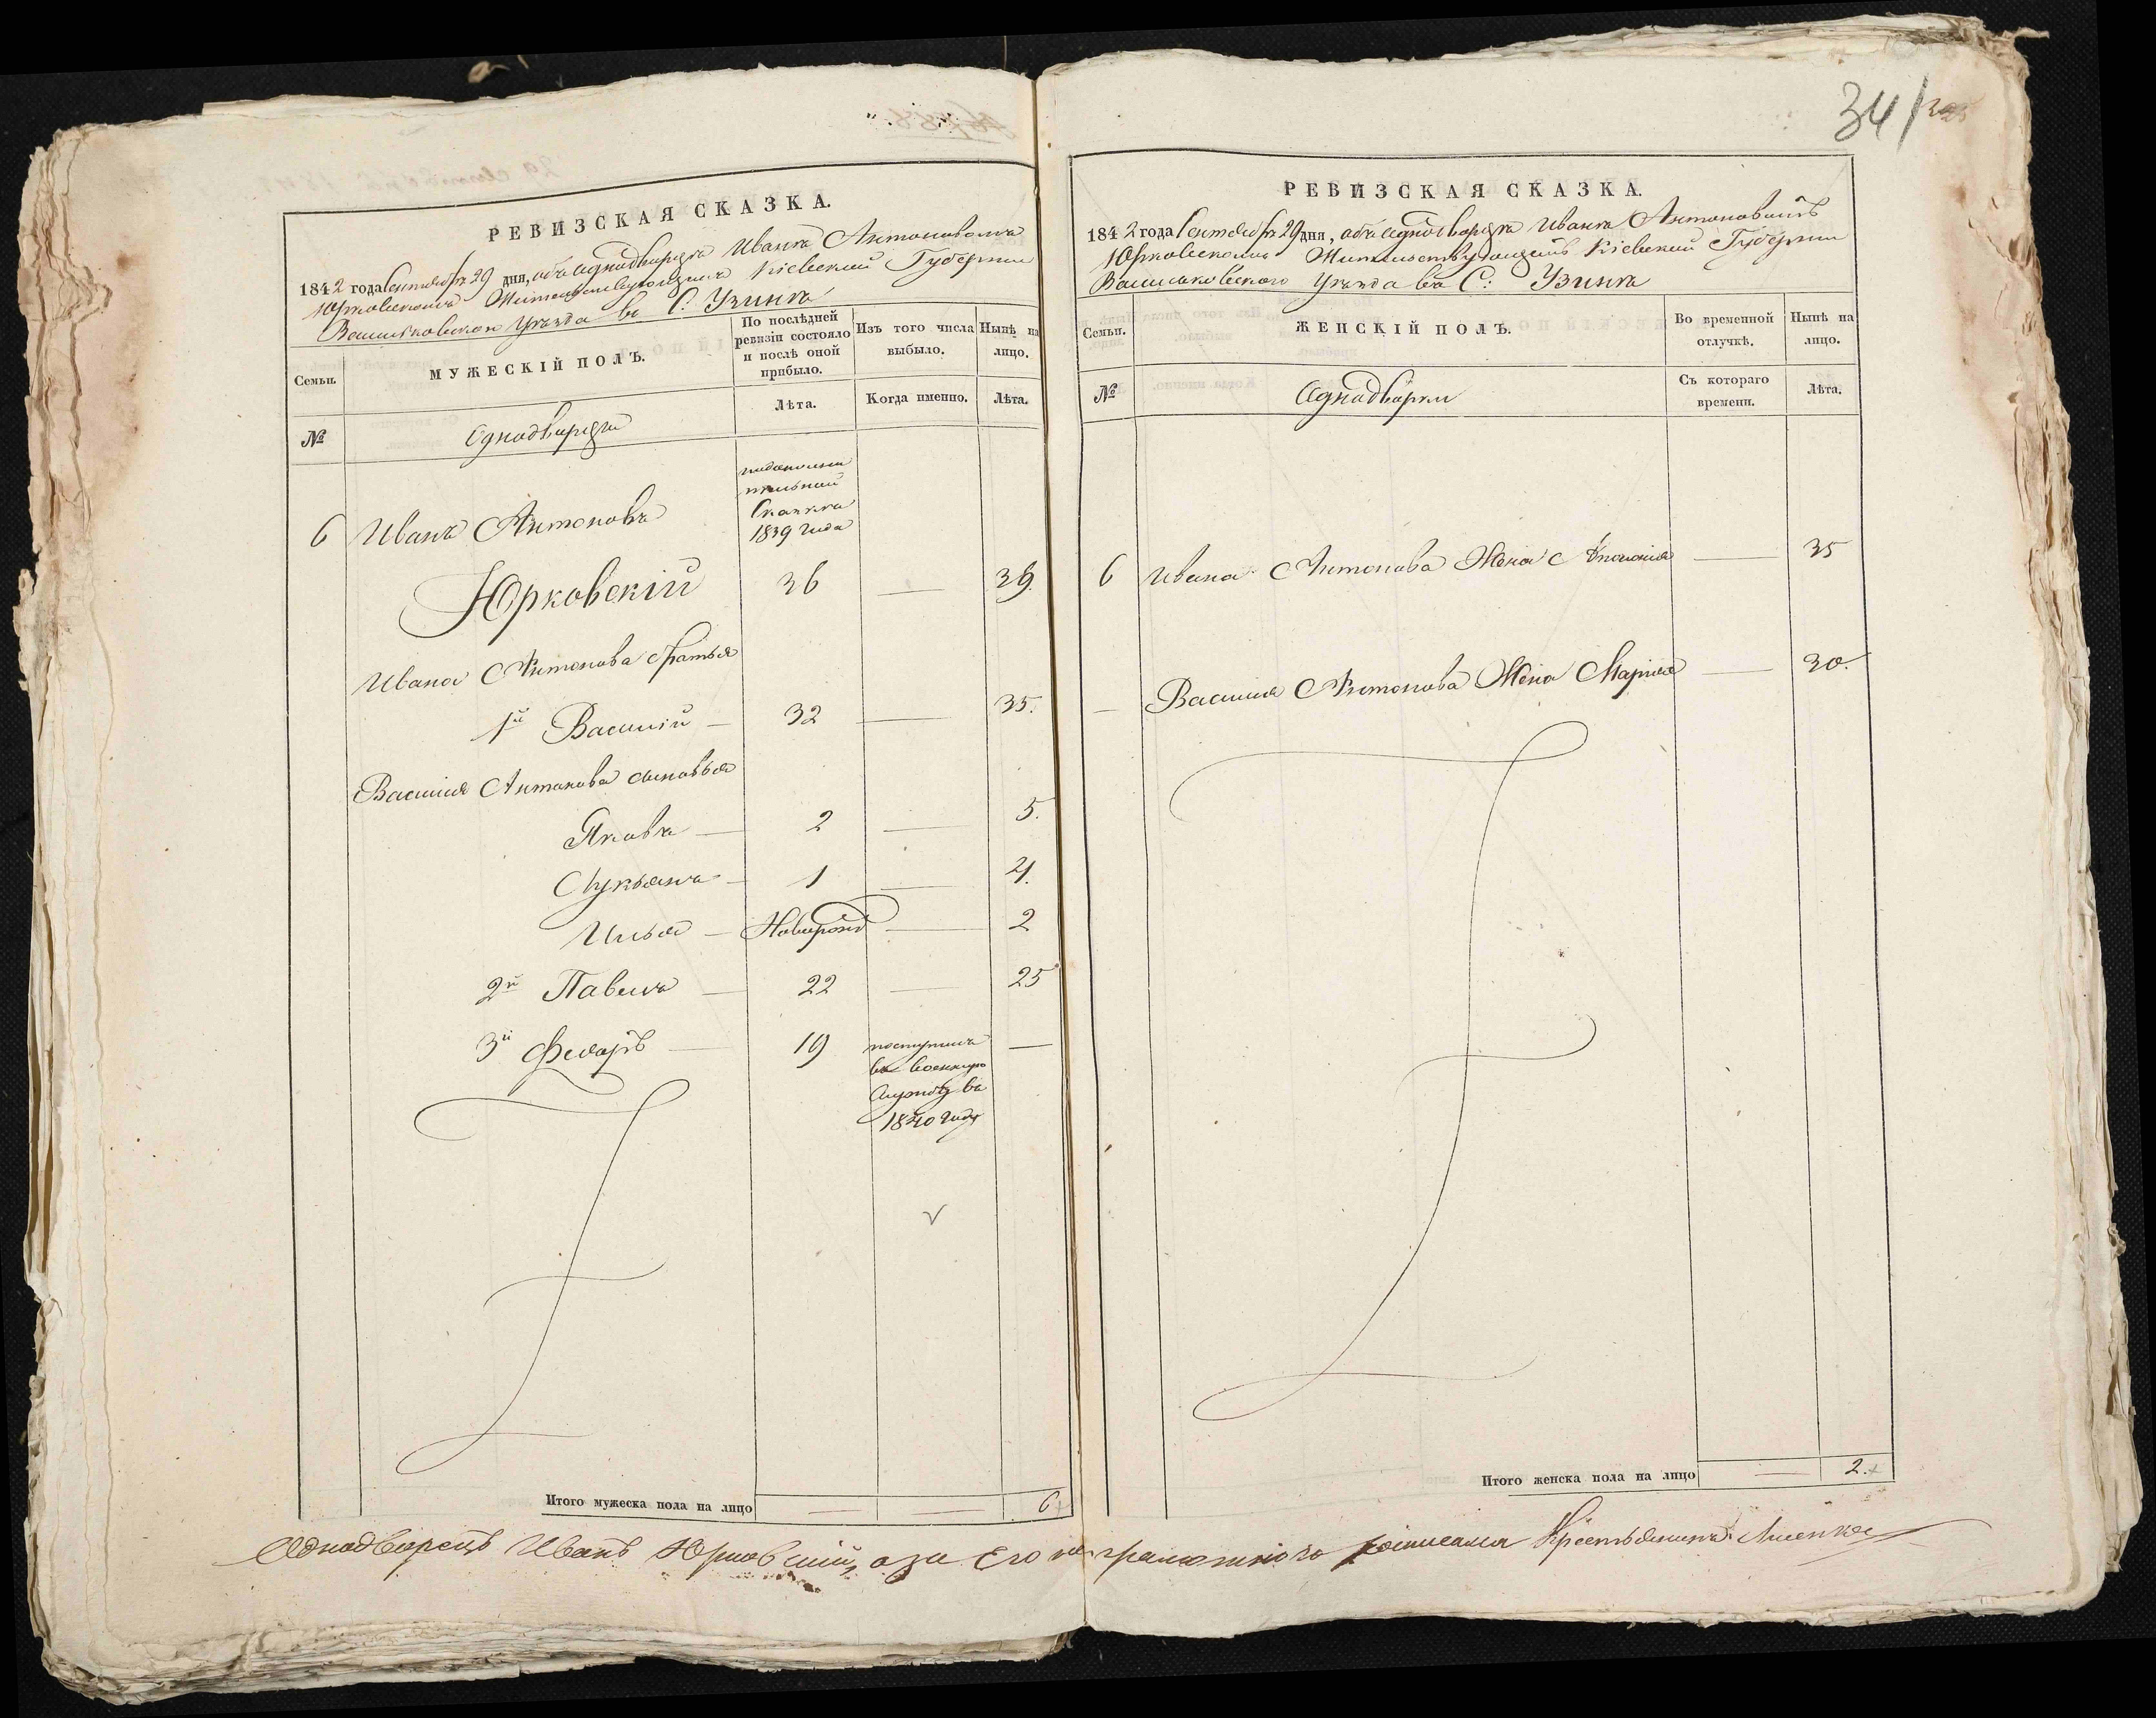 РЕВИЗСКАЯ СКАЗКА.
1842 года Сентября 29 дня, объ однодворцѣ Иванѣ Антоновомъ
Юрковскомъ Жительствующемъ Кіевской Губерніи
Васильковскаго Уѣзда въ С. Узинѣ
Семьи.
МУЖЕСКІЙ ПОЛЪ.
По послѣдней
ревизіи состояло
и послѣ оной
прибыло.
Изъ того числа
выбыло.
Нынѣ на
лицо.
№
Однодворцы
Лѣта.
Когда именно.
Лѣта.
сказкѣ
1839 года
6 Иванъ Антоновъ
Юрковскій 36 — 39.
Ивана Антонова братья
1й Василій — 32 — 35.
Василія Антонова сыновья
Яковъ — 2 — 5.
Лукьянъ — 1 — 4.
Илья — Новорожд — 2
2й Павелъ — 22 — 25
3й Федоръ — 19 поступилъ —
въ военную
службу въ
1840 году
Итого мужеска пола на лицо — — 6
34
РЕВИЗСКАЯ СКАЗКА.
1842 года Сентября 29 дня, объ однодворцѣ Иванѣ Антоновомъ
Юрковскомъ Жительствующемъ Кіевской Губерніи
Васильковскаго Уѣзда въ С: Узинѣ
Семьи.
ЖЕНСКІЙ ПОЛЪ.
Во временной
отлучкѣ.
Нынѣ на
лицо.
№
Однодворки
Съ котораго
времени.
Лѣта.
6 Ивана Антонова Жена — 35
— Василія Антонова Жена Марія — 30.
Итого женска пола на лицо — 2.
Однодворецъ Иванъ Юрковскій, а за Его неграмотного росписался Крестьянинъ